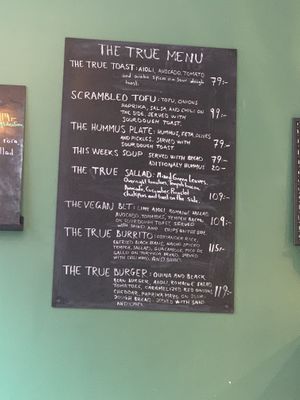 THE TRUE MENU
THE TRUE TOAST: AIOLI, AVOCADO, TOMATO
and onion spices on Sour dough
toast. 79:-
SCRAMBLED TOFU: TOFU, ONIONS
PAPRIKA, SALSA AND CHILI ON
THE SIDE, SERVED WITH 99:-
SOURDOUGH TOAST.
THE HUMMUS PLATE: HUMMUS, FETA, OLIVES
AND PICKLES. SERVED WITH 79:-
SOUR DOUGH TOAST
THIS WEEKS SOUP SERVED WITH BREAD 79:-
ADDITIONARY HUMMUS 20:-
THE TRUE SALLAD: Mixed Green Leaves,
Overnight tomatoes,
Avocado, Cucumber, Roasted 109:-
Chickpeas and toast on the side.
THE VEGAN BLT: LIME AIOLI, ROMAINE SALLAD,
AVOCADO, TOMATOES,
ON SOURDOUGH TOAST SERVED 109:-
WITH AND CHIPS ON THE SIDE
THE TRUE BURRITO: CORIANDER RICE,
BLACK BEANS, NACHO SPICED
TEMPEH, SALSA, GUACAMOLE, PICO DE 115:-
GALLO ON TORTILLA BREAD, SERVED
WITH AND
THE TRUE BURGER: QUINOA AND BLACK
BEAN BURGER, AIOLI, ROMAINE SALAD,
TOMATOES, CARAMELIZED RED ONIONS 119:-
CHEDDAR, PAPRIKA MAYO ON SOUR-
DOUGH BREAD. SERVED WITH
AND